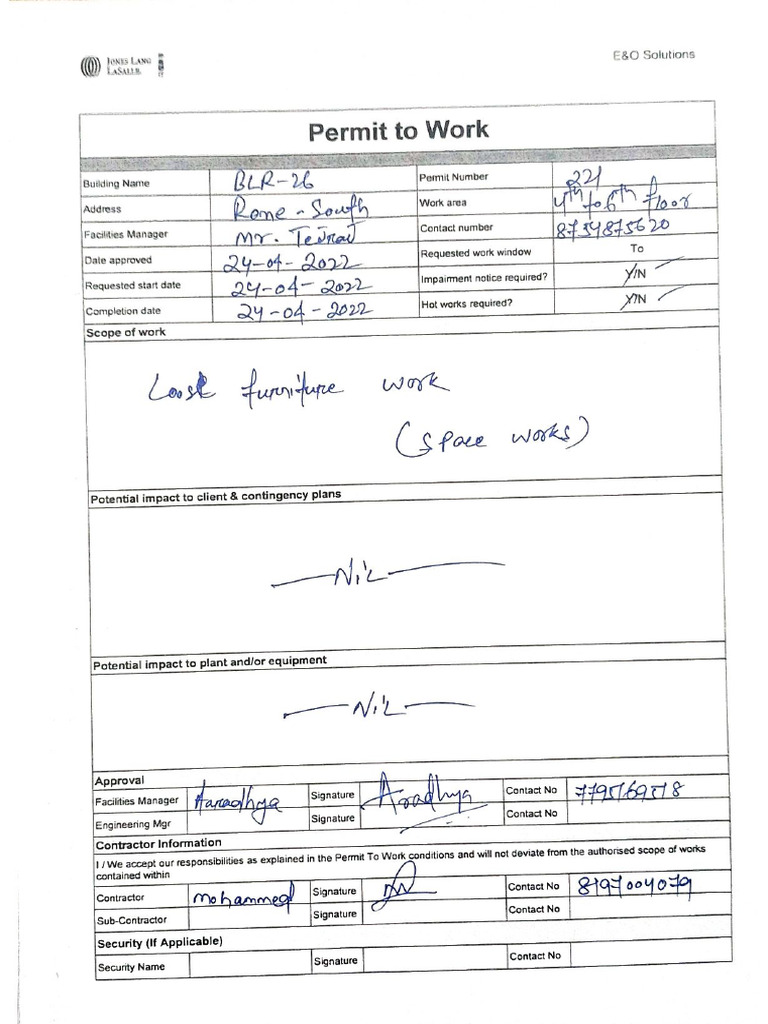 JONES LANG
LASALLE
E&O Solutions
Permit to Work
Building Name BLR-26 Permit Number 221
Address Rone - South Work area 4th to 6th floor
Facilities Manager Mr. Contact number 8734875620
Date approved 24-04-2022 Requested work window To
Requested start date 24-04-2022 Impairment notice required? Y/N
Completion date 24-04-2022 Hot works required? Y/N
Scope of work
furniture work
(space works)
Potential impact to client & contingency plans
NiL
Potential impact to plant and/or equipment
NiL
Approval
Facilities Manager Aaradhya Signature Aradhya Contact No
Engineering Mgr Signature Contact No
Contractor Information
I / We accept our responsibilities as explained in the Permit To Work conditions and will not deviate from the authorised scope of works
contained within
Contractor mohammed Signature Contact No 8197004079
Sub-Contractor Signature Contact No
Security (If Applicable)
Security Name Signature Contact No